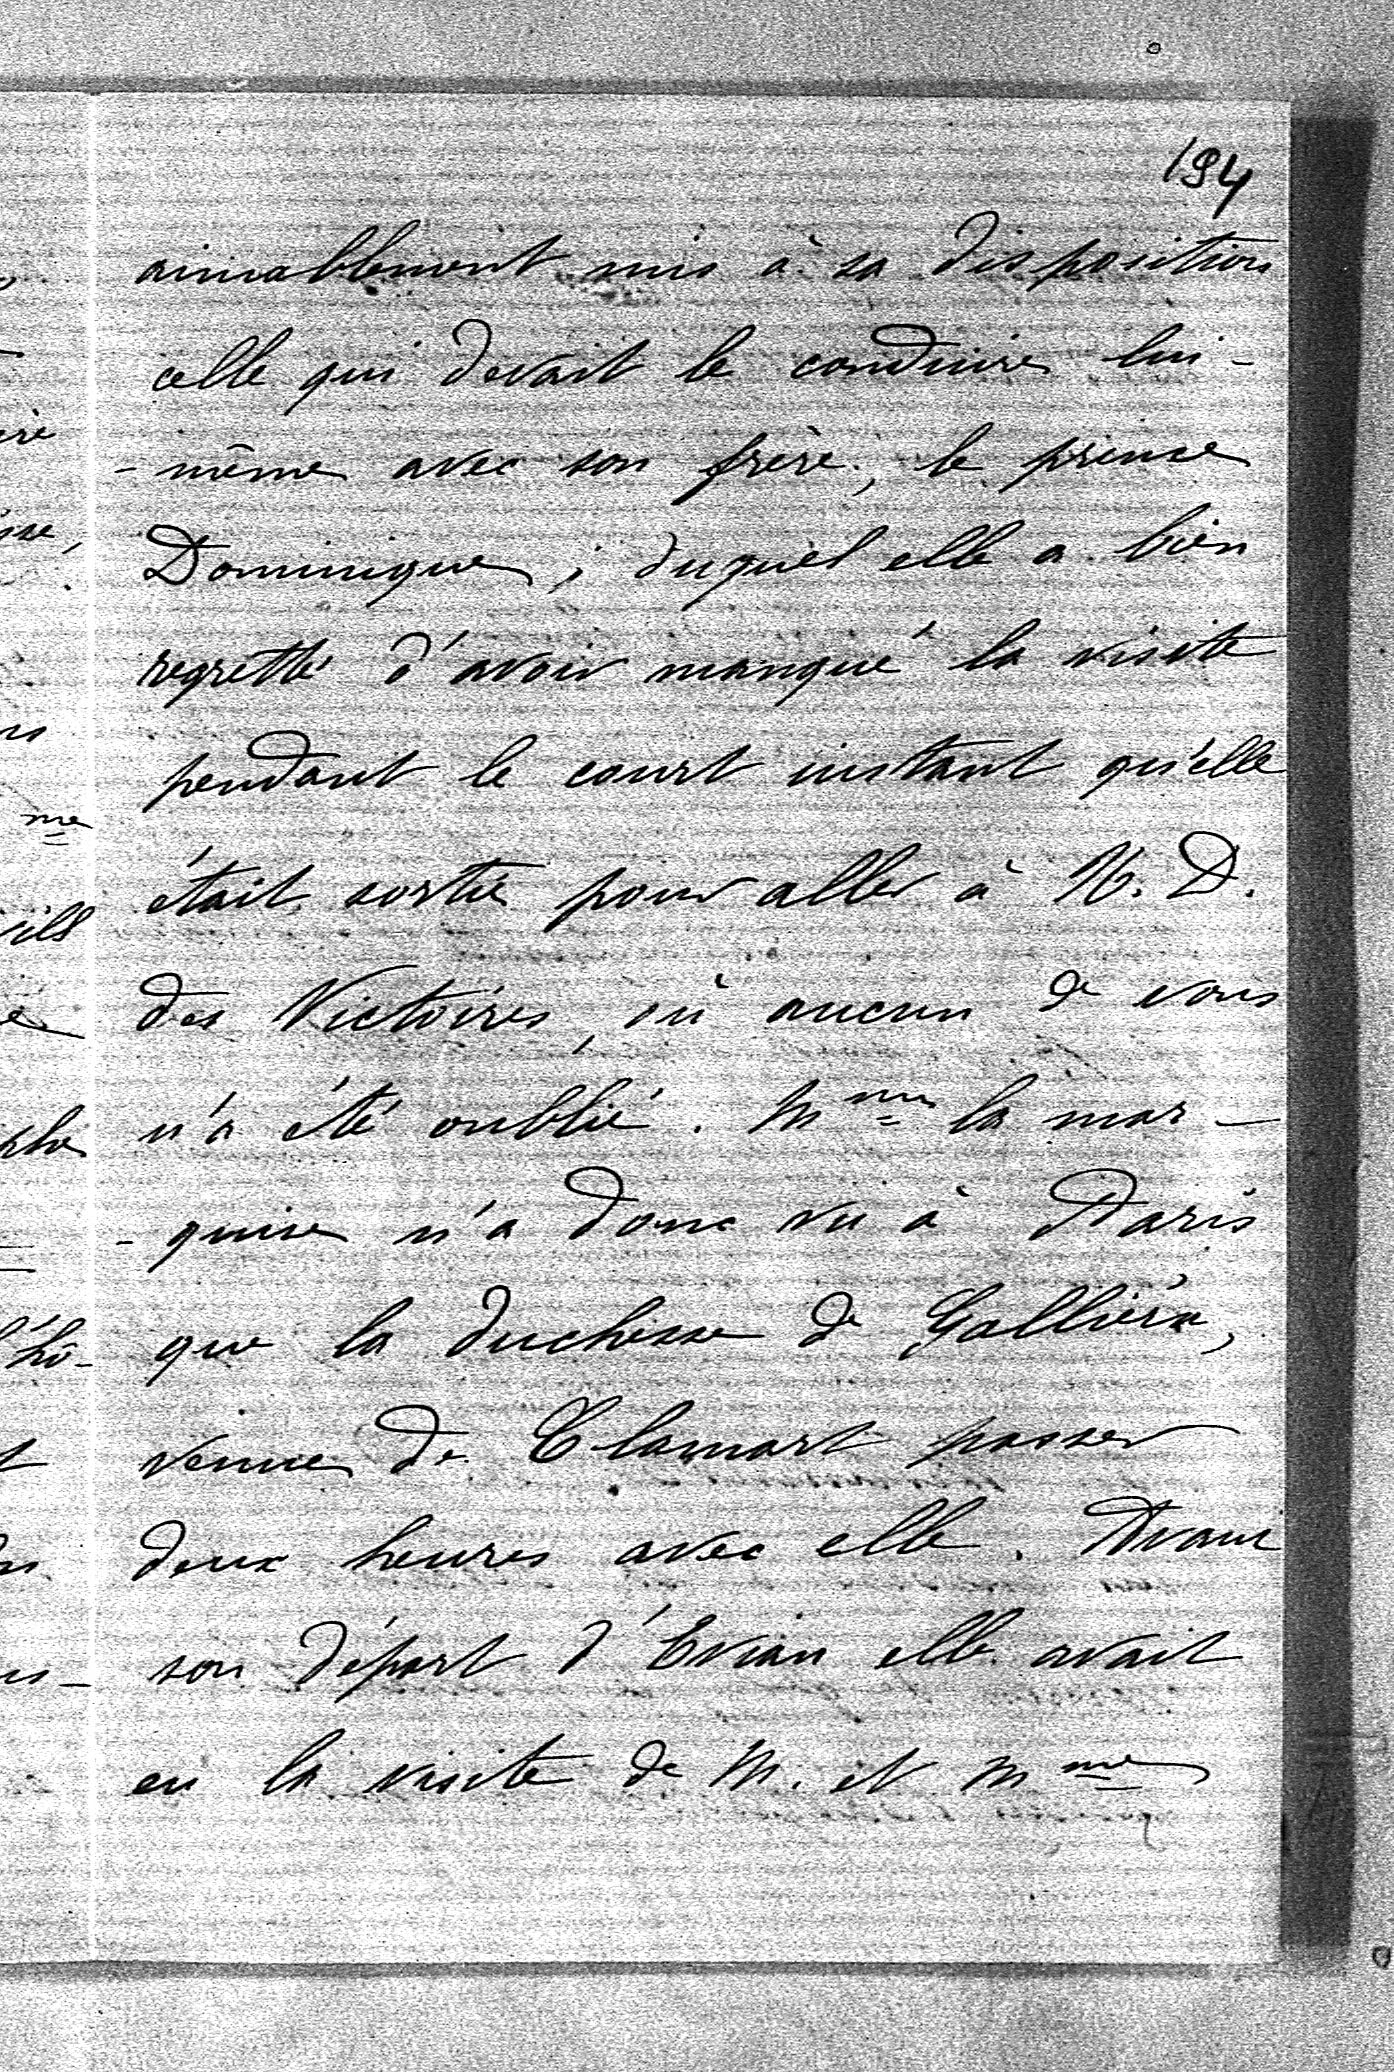 194
aimablement mis à sa disposition
celle qui devait le conduire lui-
-même avec son frère, le prince
Dominique ; duquel elle a bien
regretté d'avoir manqué la visite
pendant le court instant qu'elle
était sortie pour aller à N. D.
des Victoires, où aucun de vous
n'a été oublié. Mme la mar-
-quise n'a donc vu à Paris
que la duchesse de Galliéra,
venue de Clamart passer
deux heures avec elle. Avant
son départ d'Evian elle avait
eu la visite de M. et Mme